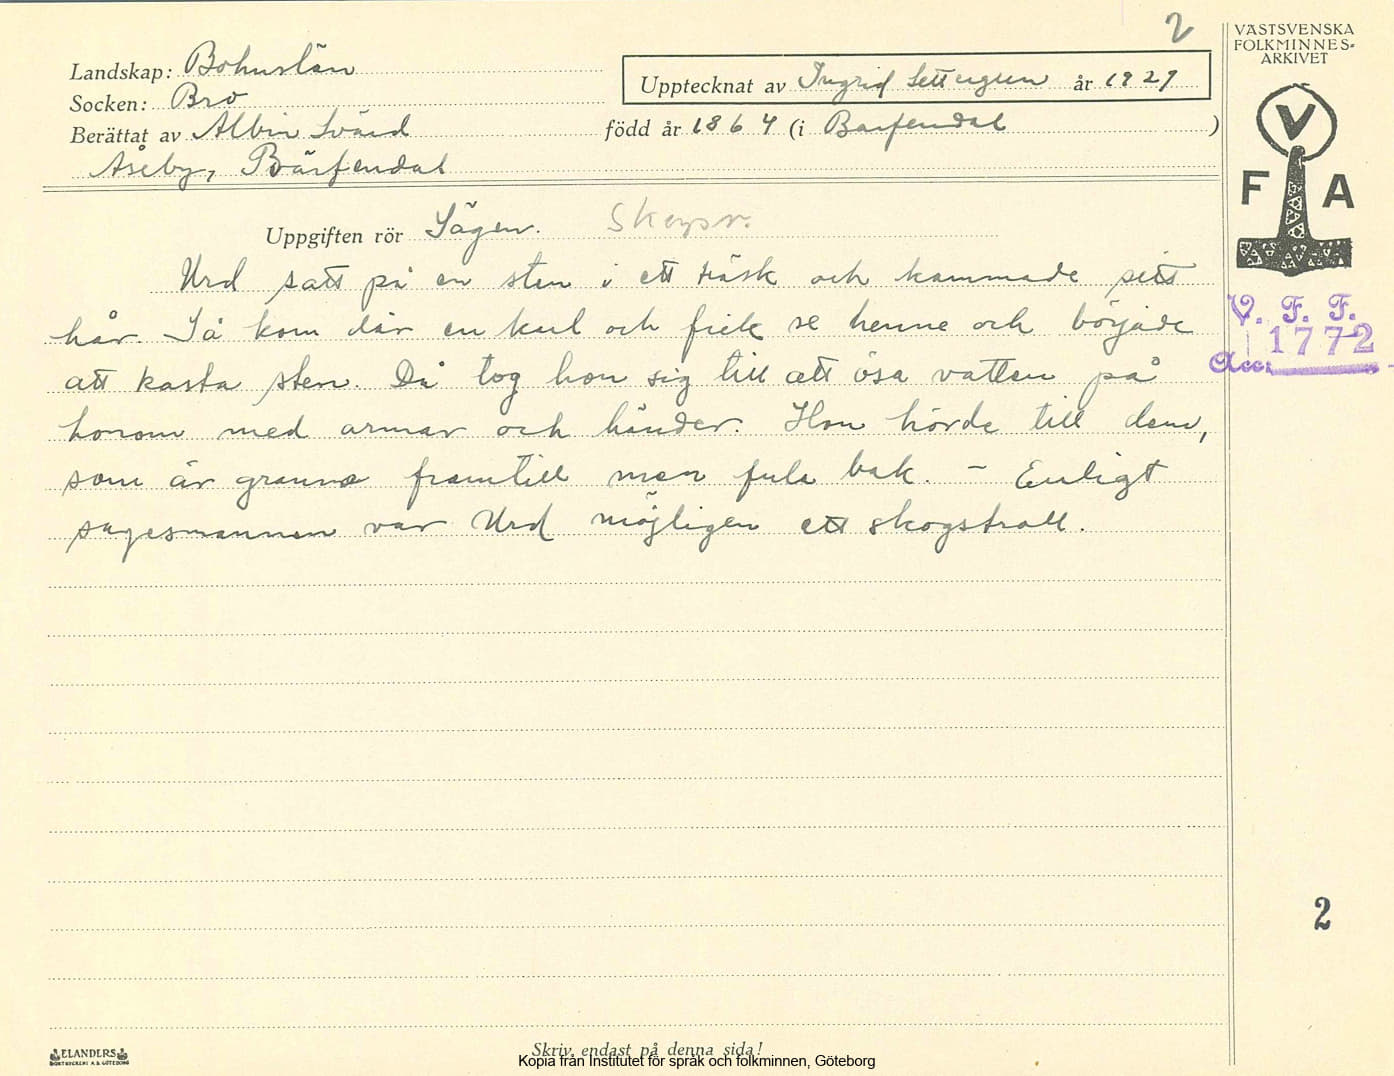 2
VÄSTSVENSKA
FOLKMINNES-
ARKIVET
Landskap: Bohuslän
Upptecknat av Ingrid Settergren år 1927
Socken: Bro
Berättat av Albin Svärd född år 1864 (i Bärfendal)
Åseby, Bärfendal
V
F A
Uppgiften rör Sägen. Skogsr.
Urd satt på en sten i ett träsk och kammade sitt
hår. Så kom där en karl och fick se henne och började
att kasta sten. Då tog hon sig till att ösa vatten på
honom med armar och händer. Hon hörde till dem,
som är granna framtill men fula bak. – Enligt
sagesmannen var Urd möjligen ett skogstroll.
V. F. F.
Acc: 1772
2
ELANDERS
BOKTRYCKERI A.B. GÖTEBORG
Skriv endast på denna sida!
Kopia från Institutet för språk och folkminnen, Göteborg